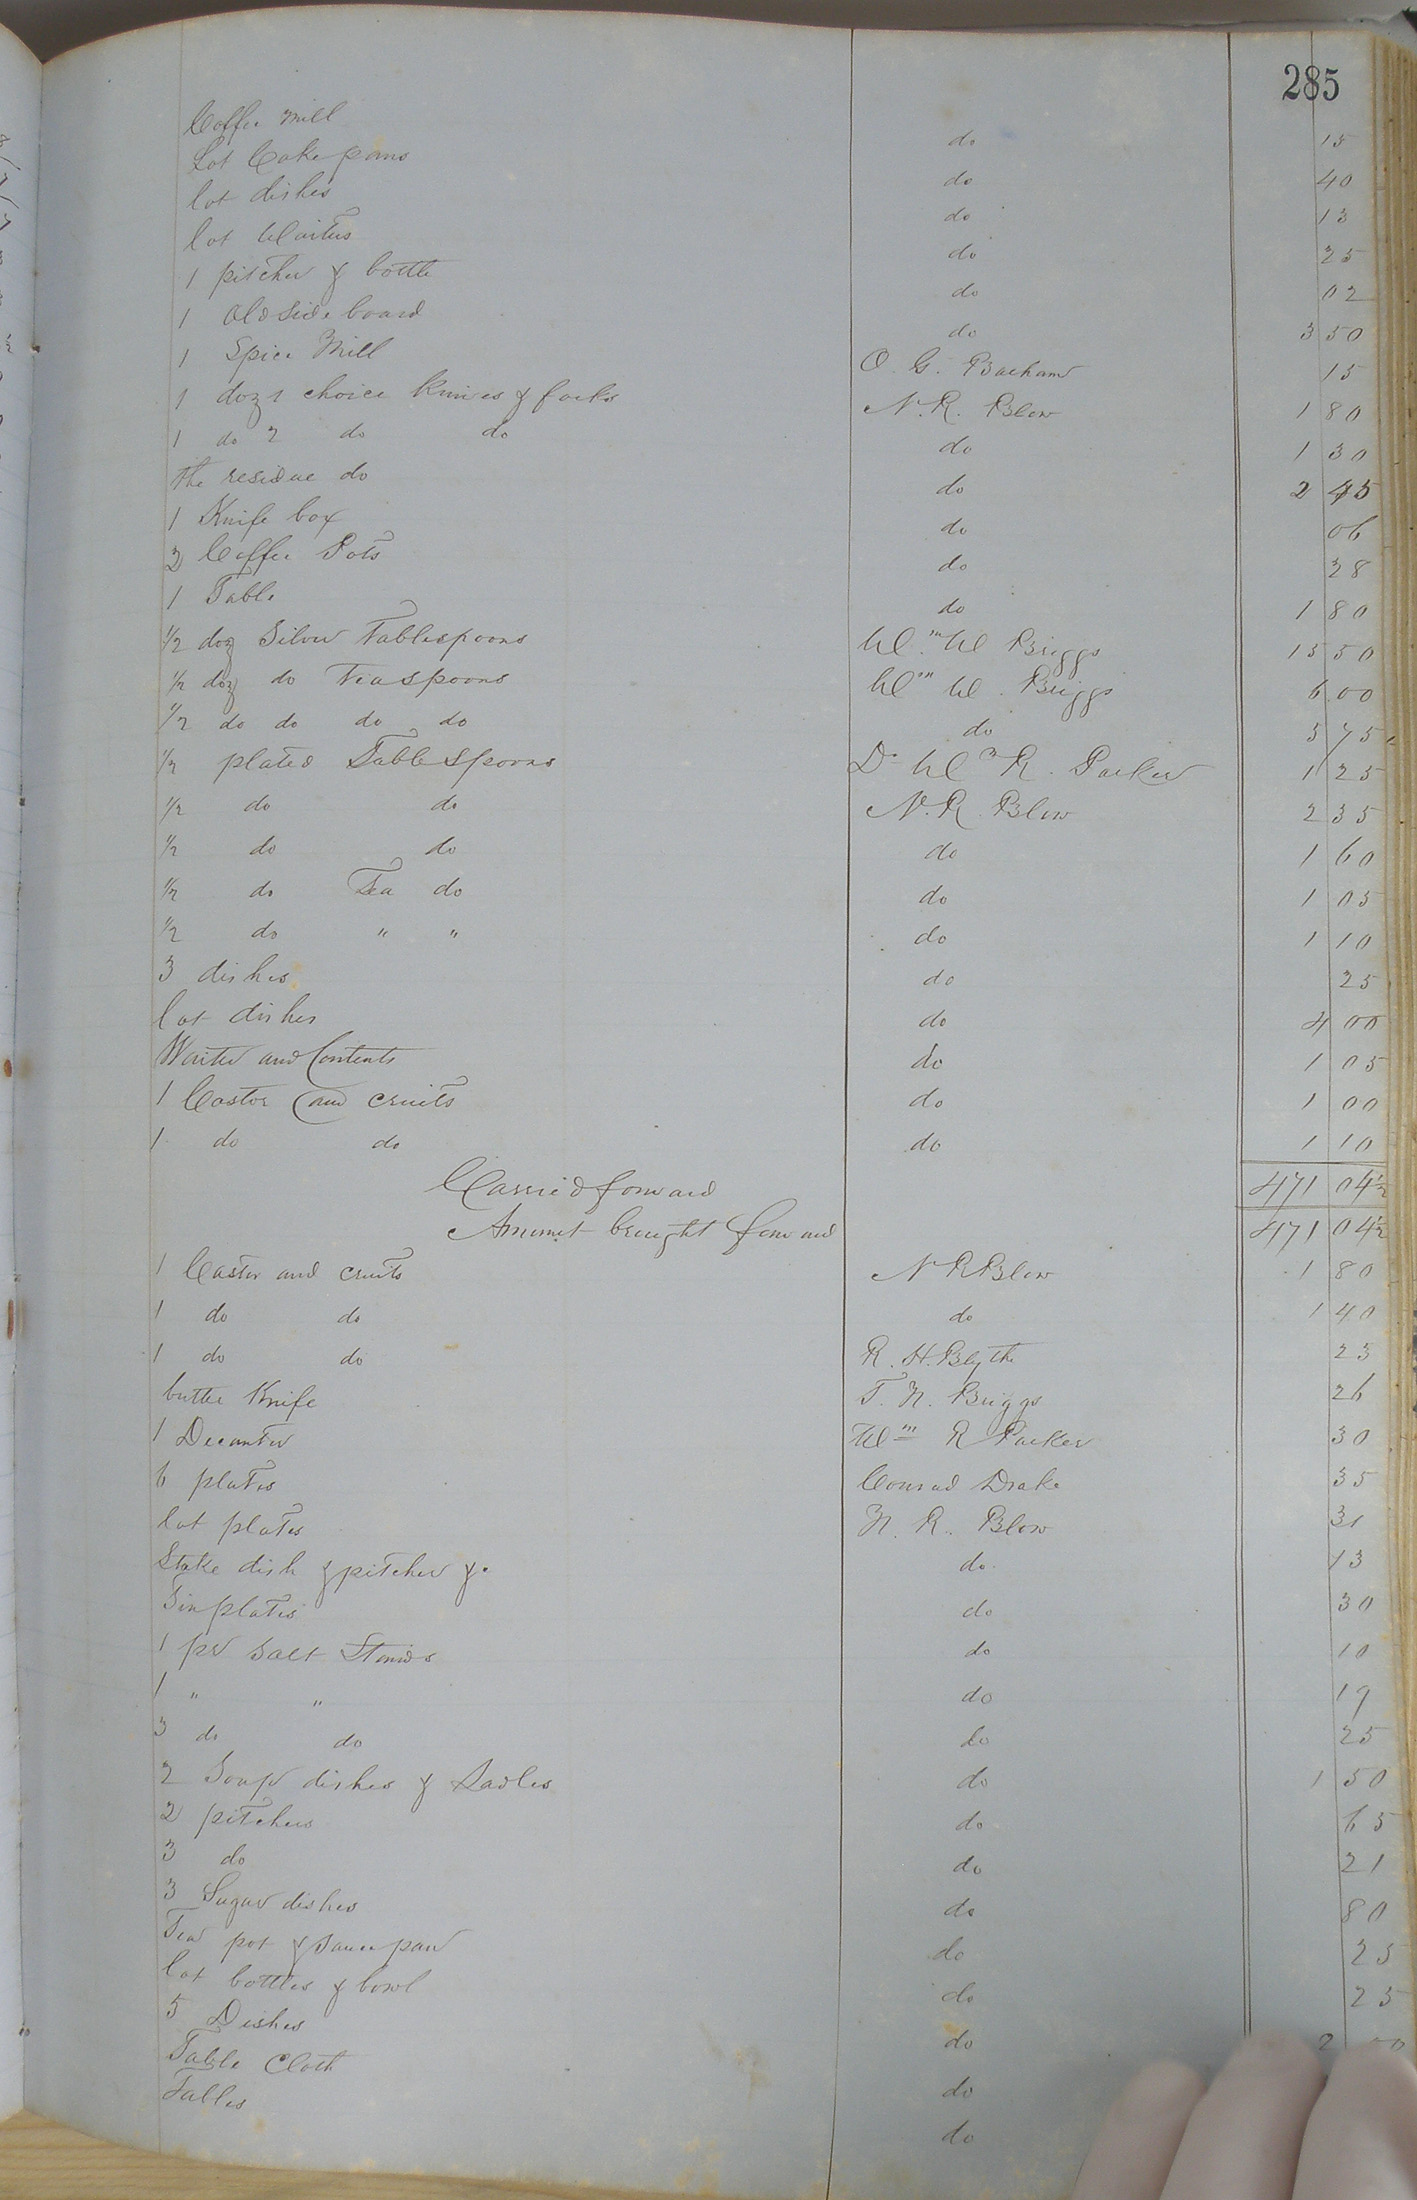 285
Coffee Mill do 15
Lot Cake pans do 40
lot dishes do 13
lot Waiters do 25
1 pitcher & bottle do 02
1 old Side board do 3 50
1 Spice Mill O. G. Bacham 15
1 doz 1 choice Knives & forks N. R. Blow 1 80
1 do 2 do do do 1 30
The residue do do 2 45
1 Knife box do 06
2 Coffee Pots do 28
1 Table do 1 80
1/2 doz Silver Tablespoons Wm W Briggs 15 50
1/2 doz do Teaspoons Wm W. Briggs 6 00
1/2 do do do do do 5 75
1/2 plated Table Spoons Dr Wm R. Parker 1 25
1/2 do do N. R. Blow 2 35
1/2 do do do 1 60
1/2 do Tea do do 1 05
1/2 do " " do 1 10
3 dishes do 25
lot dishes do 4 00
Waiter and Contents do 1 05
1 Castor and cruits do 1 00
1 do do do 1 10
Carried forward 471 04 1/2
Amount brought forward 471 04 1/2
1 Castor and cruits N R Blow 1 80
1 do do do 1 40
1 do do R. H. Blythe 25
butter Knife T. N. Briggs 26
1 Decanter Wm R Parker 30
6 plates Conrad Drake 35
lot plates N. R. Blow 31
Stake dish & pitcher &c do 13
Tin plates do 30
1 pr Salt Stands do 10
1 " " do 19
3 do do do 25
2 Soup dishes & Ladles do 1 50
2 pitchers do 65
3 do do 21
3 Sugar dishes do 80
Tea pot & Sauce pan do 25
lot bottles & bowl do 25
5 Dishes do 2 00
Table Cloth do
Tables do